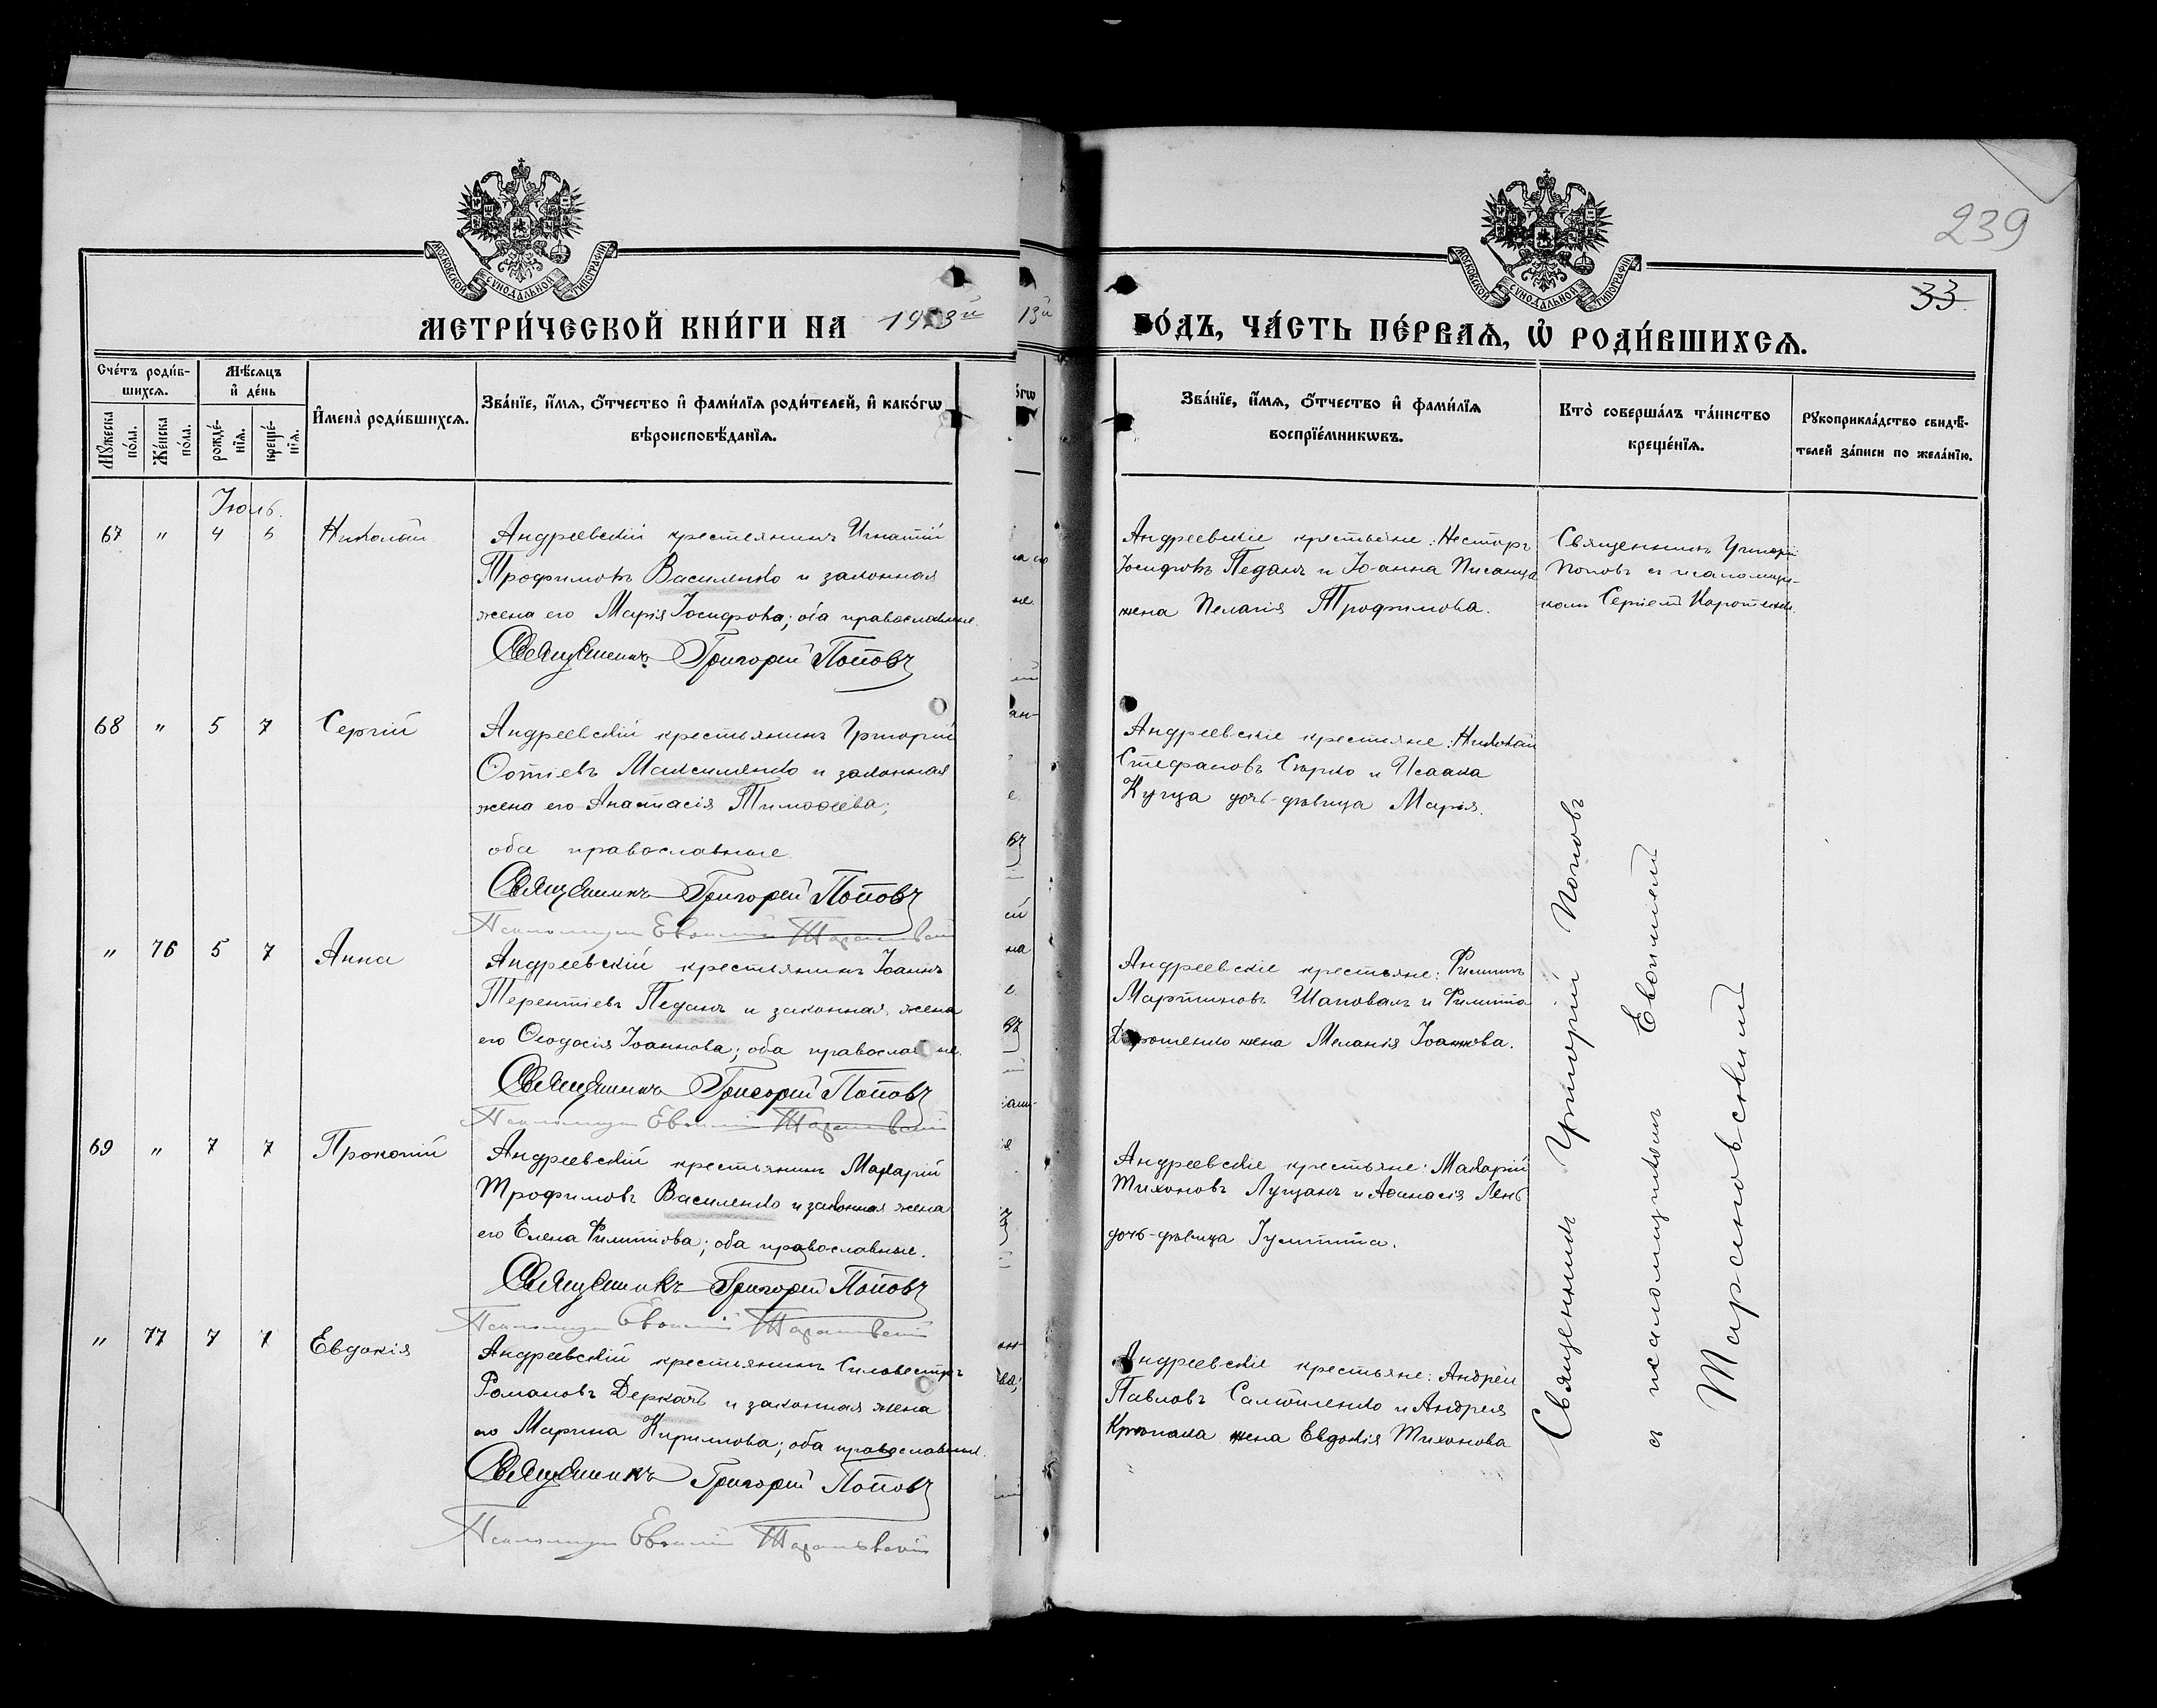 239
33
МОСКОВСКОЙ СѴНОДАЛЬНОЙ ТИПОГРАФІИ
МОСКОВСКОЙ СѴНОДАЛЬНОЙ ТИПОГРАФІИ
МЕТРИ́ЧЕСКОЙ КНИ́ГИ НА 1913й
13й
ГО́ДЪ, ЧА́СТЬ ПЕ́РВАѦ, Ѡ҆ РОДИ́ВШИХСѦ.
Сче́тъ роди́в-
шихсѧ.
Мѣ́сѧцъ
и҆ де́нь
Мꙋ́жеска по́ла.
Же́нска по́ла.
рожде́-
нїѧ.
креще́-
нїѧ.
И҆мена̀ роди́вшихсѧ.
Зва́нїе, и҆́мѧ, ѻ҆́тчество и҆ фами́лїѧ роди́телей, и҆ како́гѡ
вѣроисповѣ́данїѧ.
Зва́нїе, и҆́мѧ, ѻ҆́тчество и҆ фами́лїѧ
воспрїе́мникѡвъ.
Кто̀ соверша́лъ та́инство
креще́нїѧ.
Рꙋкоприкла́дство свидѣ́-
телей за́писи по жела́нїю.
Іюль.
67 " 4 6 Николай
Андреевскій крестьянинъ Игнатій
Трофимовъ Василенко и законная
жена его Марія Іосифова; оба православные.
Священникъ Григорій Поповъ
Андреевскіе крестьяне: Несторъ
Іосифовъ Педанъ и Іоанна Писанца
жена Пелагія Трофимова.
Священникъ Григорій
Поповъ съ псаломщи-
комъ Сергіемъ
68 " 5 7 Сергій
Андреевскій крестьянинъ Григорій
Фотіевъ Максименко и законная
жена его Анастасія Тимоѳеева;
оба православные
Священникъ Григорій Поповъ
Псаломщикъ Евѳимій Тарановскій
Андреевскіе крестьяне: Николай
Стефановъ Сѣрко и Исаака
дочь-дѣвица Марія.
" 76 5 7 Анна
Андреевскій крестьянинъ Іоаннъ
Терентіевъ Педанъ и законная жена
его Ѳеодосія Іоаннова; оба православные.
Священникъ Григорій Поповъ
Псаломщикъ Евѳимій Тарановскій
Андреевскіе крестьяне: Филиппъ
Мартиновъ Шаповалъ и Филиппа
Дорошенко жена Меланія Іоаннова.
69 " 7 7 Прокопій
Андреевскій крестьянинъ Макарій
Трофимовъ Василенко и законная жена
его Елена Филиппова; оба православные.
Священникъ Григорій Поповъ
Псаломщикъ Евѳимій Тарановскій
Андреевскіе крестьяне: Макарій
Тихоновъ Лущанъ и Аѳанасія Лень
дочь-дѣвица Іулитта.
" 77 7 7 Евдокія
Андреевскій крестьянинъ Силовестръ
Романовъ Деркачъ и законная жена
его Марина Кириллова; оба православные.
Священникъ Григорій Поповъ
Псаломщикъ Евѳимій Тарановскій
Андреевскіе крестьяне: Андрей
Павловъ Самойленко и Андрея
жена Евдокія Тихонова
Священникъ Григорій Поповъ
съ псаломщикомъ Евѳиміемъ
Тарановскимъ